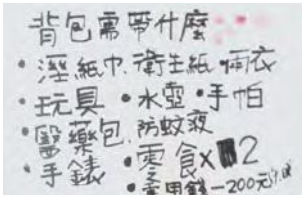 背包需帶什麼
·溼紙巾、衛生紙、雨衣
·玩具 ·水壺 ·手帕
·醫藥包、防蚊液
·手錶 ·零食×2
·零用錢-200元